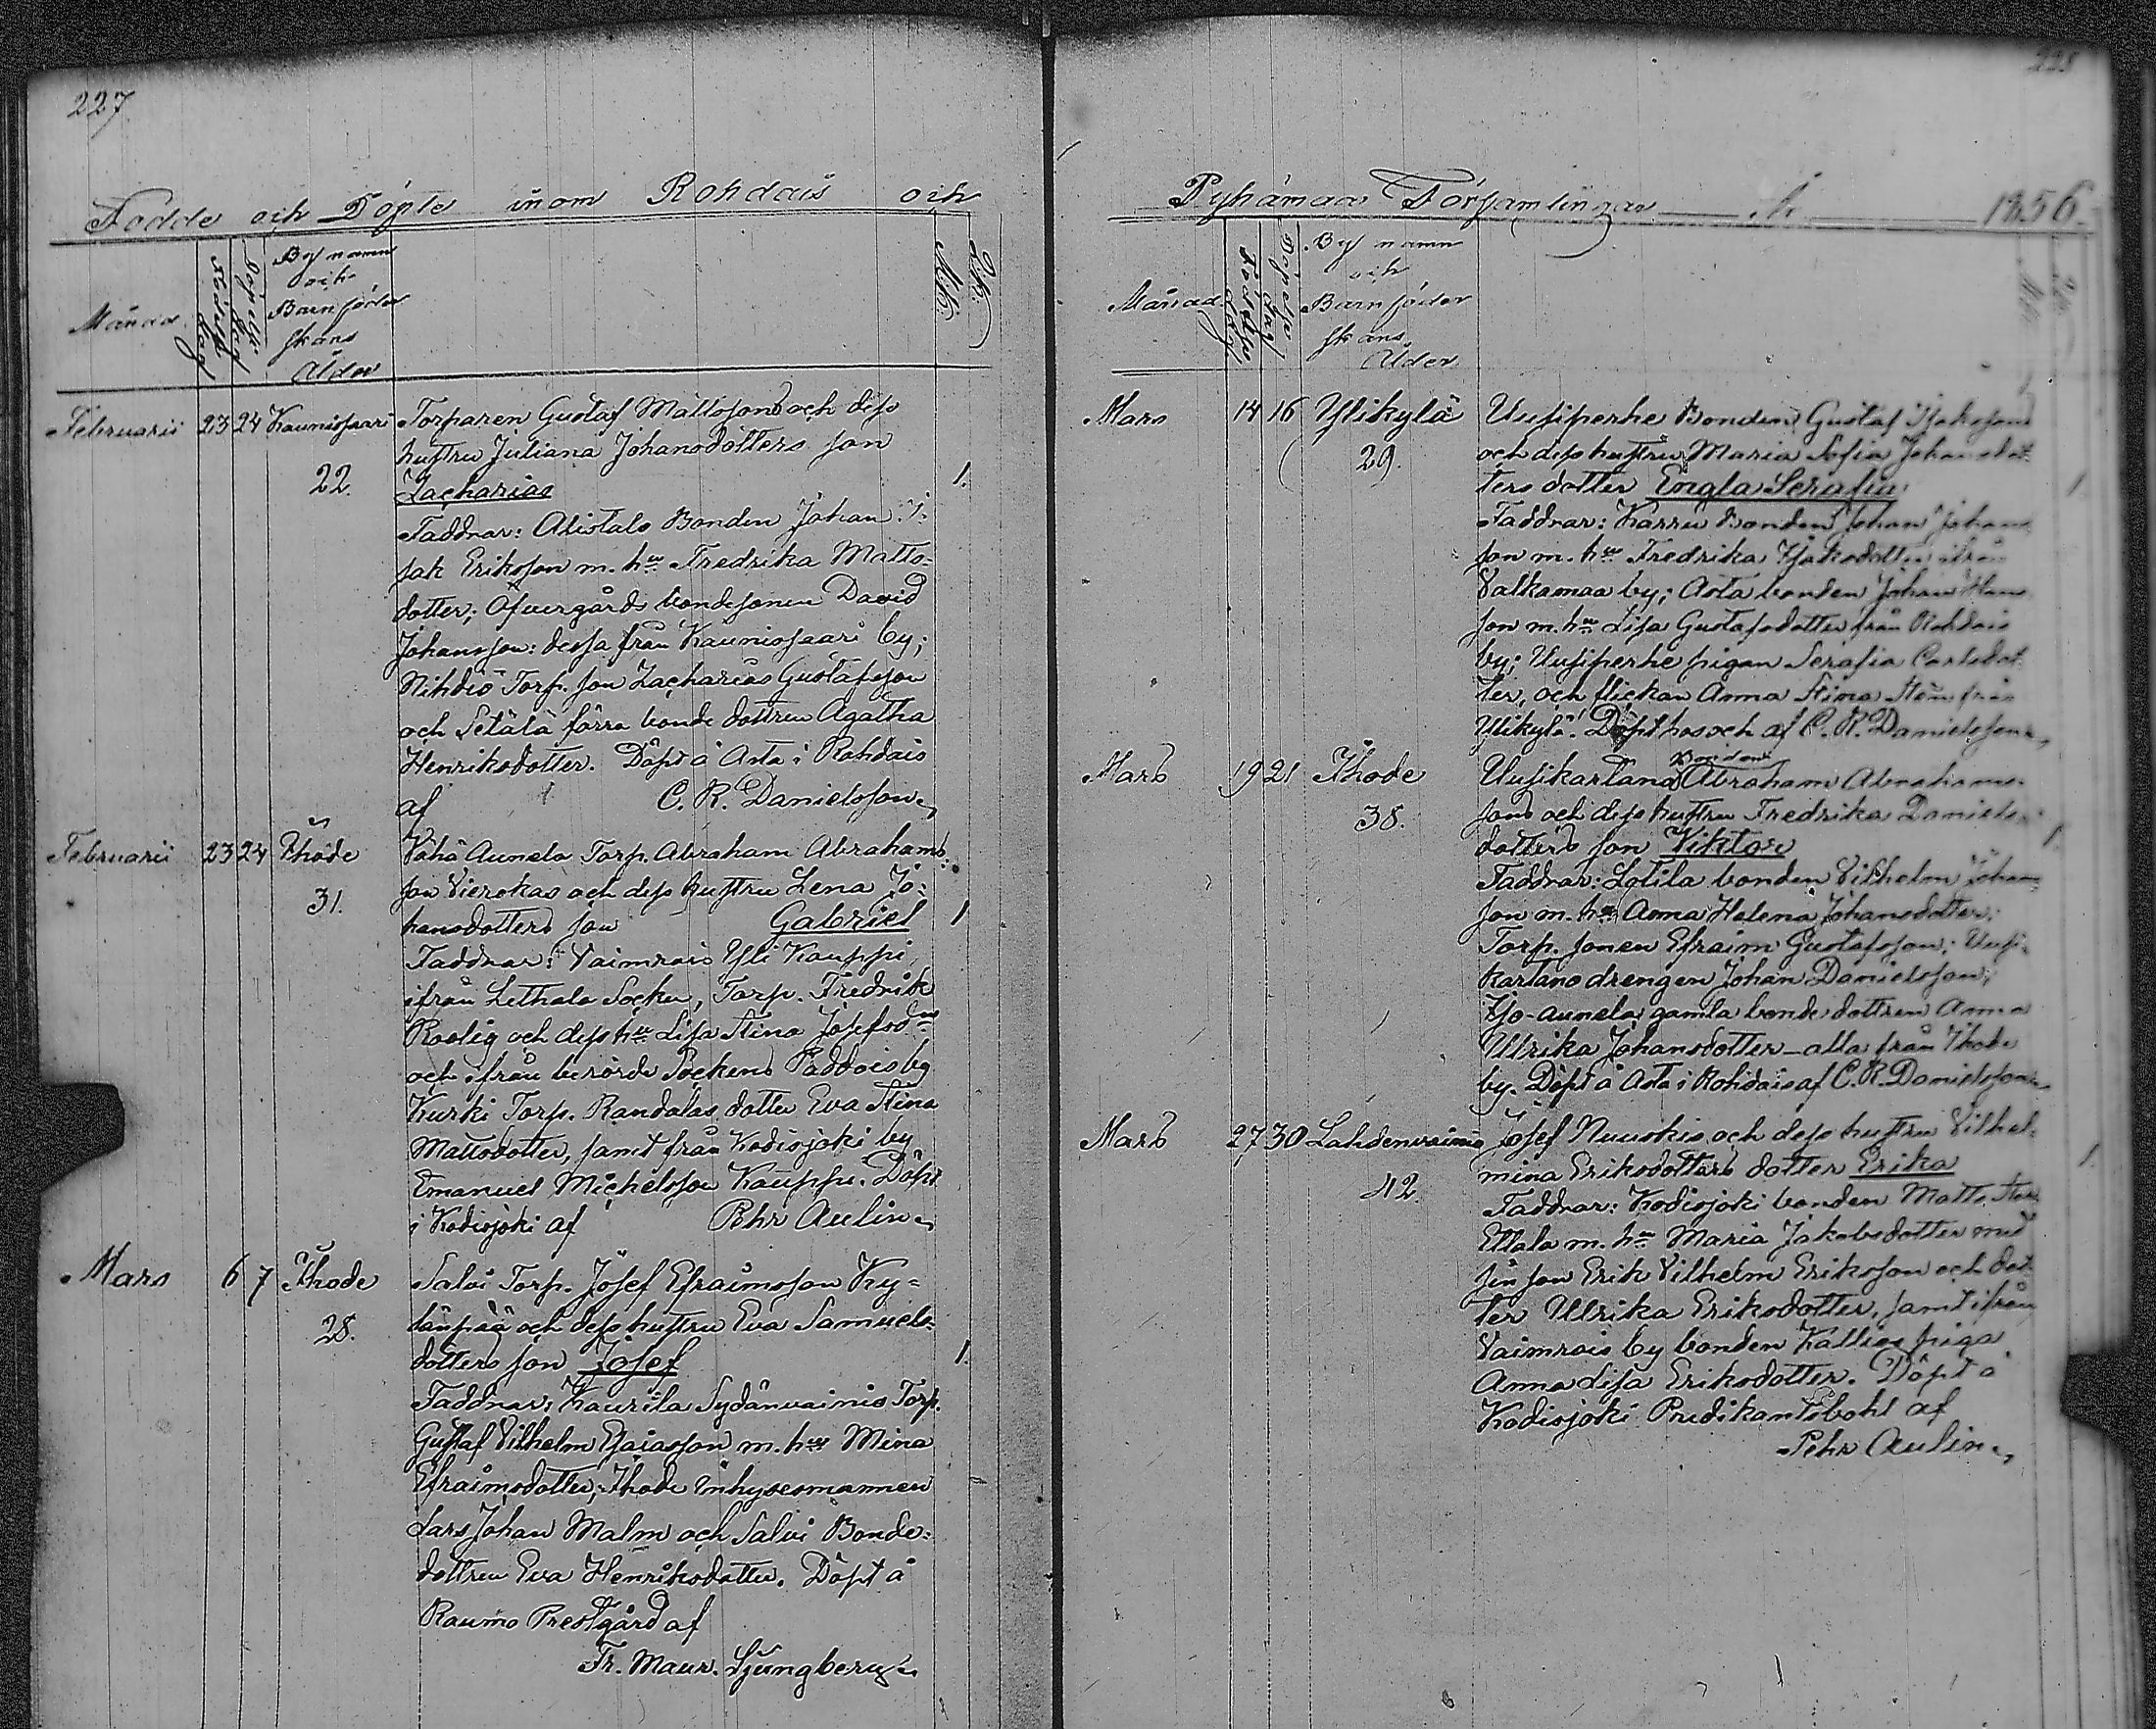 227
Födde och Döpte inom Rohdais och
Månad
Födelse Dag
Döpelse Dag
By namn
och
Barnföder
skans
Ålder
M.k.
Q.k.
Februarii 23 24 Kaunissaari Torparen Gustaf Mattssons och dess
hustru Juliana Johansdotters son
22. Zacharias 1.
Faddrar: Alistalo Bonden Johan I-
sak Eriksson m. h:u Fredrika Matts-
dotter; Öfvergårds bondesonen David
Johansson: dessa från Kaunissaari by;
Nihdiö Torp. son Zacharias Gustafsson
och Setälä förra bonde dottren Agatha
Henriksdotter. Döpt å Asta i Rohdais
af C. R. Danielsson
Februarii 23 24 Ihode Vähä Aunela Torp. Abraham Abrahams-
31. son Vierokas och dess hustru Lena Jo-
hansdotters son Gabriel 1
Faddrar: Vaimrais Yli Kauppi
ifrån Lethala Socken, Torp. Fredrik
Roolig och dess h:u Lisa Stina Josefsd:r
och ifrån berörde Sockens Paddois by
Kurki Torp. Randalas dotter Eva Stina
Mattsdotter, samt från Kodisjoki by
Emanuel Michelsson Kauppi. Döpt
i Kodisjoki af Pehr Aulin
Mars 6 7 Ihode Salvi Torp. Josef Efraimsson Ky-
28. länpää och dess hustru Eva Samuels-
dotters son Josef 1.
Faddrar: Kaurila Sydänvainio Torp.
Gustaf Vilhelm Esaiasson m. h:u Mina
Efraimsdotter; Ihode Inhysesmannen
Lars Johan Malm och Salvi Bonde-
dottren Eva Henriksdotter. Döpt å
Raumo Prestgård af
Fr. Maur. Ljungberg
228
Pyhämaa Församlingar År 1856.
Månad
Födelse Dag
Döpelse Dag
By namn
och
Barnföder
skans
Ålder
Mars 14 16 Ylikylä Uusiperhe Bonden Gustaf Isakssons
29. och dess hustru Maria Sofia Johansdot-
ters dotter Engla Serafia 1
Faddrar: Karru Bonden Johan Johans
son m. h:u Fredrika Isaksdotter ifrån
Valkamaa by; Asta bonden Johan Hans
son m. h:u Lisa Gustafsdotter från Rohdais
by; Uusiperhe pigan Serafia Carlsdot-
ter, och flickan Anna Stina Sten från
Ylikylä. Döpt hos och af C. R. Danielsson
Mars 19 21 Ihode Uusikartano Bonden Abraham Abrahams-
38. sons och dess hustru Fredrika Daniels-
dotters son Viktor 1.
Faddrar: Lotila bonden Vilhelm Johans-
son m. h:u Anna Helena Johansdotter;
Torp. sonen Efraim Gustafsson; Uusi-
kartano drengen Johan Danielsson;
Iso-aunela gamla bonde dottren Anna
Ulrika Johansdotter - alla från Ihode
by. Döpt å Asta i Rohdais af C. R. Danielsson
Mars 27 30 Lahdenvainio Josef Nuuskis och dess hustru Vilhel-
42 mina Eriksdotters dotter Erika 1.
Faddrar: Kodisjoki bonden Matts
Ettala m. h:u Maria Jakobsdotter med
sin son Erik Vilhelm Eriksson och dot-
ter Ulrika Eriksdotter, samt ifrån
Vaimrais by bonden Kallios piga
Anna Lisa Eriksdotter. Döpt å
Kodisjoki Predikantsbohl af
Pehr Aulin